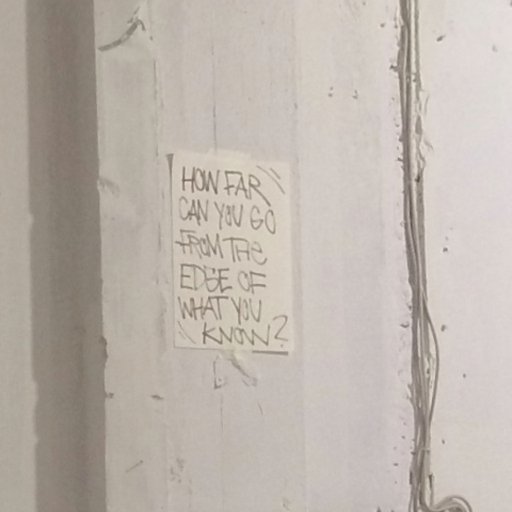 HOW FAR
CAN YOU GO
FROM THE
EDGE OF
WHAT YOU
KNOW?